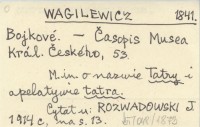 WAGILEWICZ 1841.
Bojkové. — Časopis Musea
Král. Českého, 53.
M. in. o nazwie Tatry i
apelatywie tatra.
Cytat u: ROZWADOWSKI J.
1914 c, na s. 13.